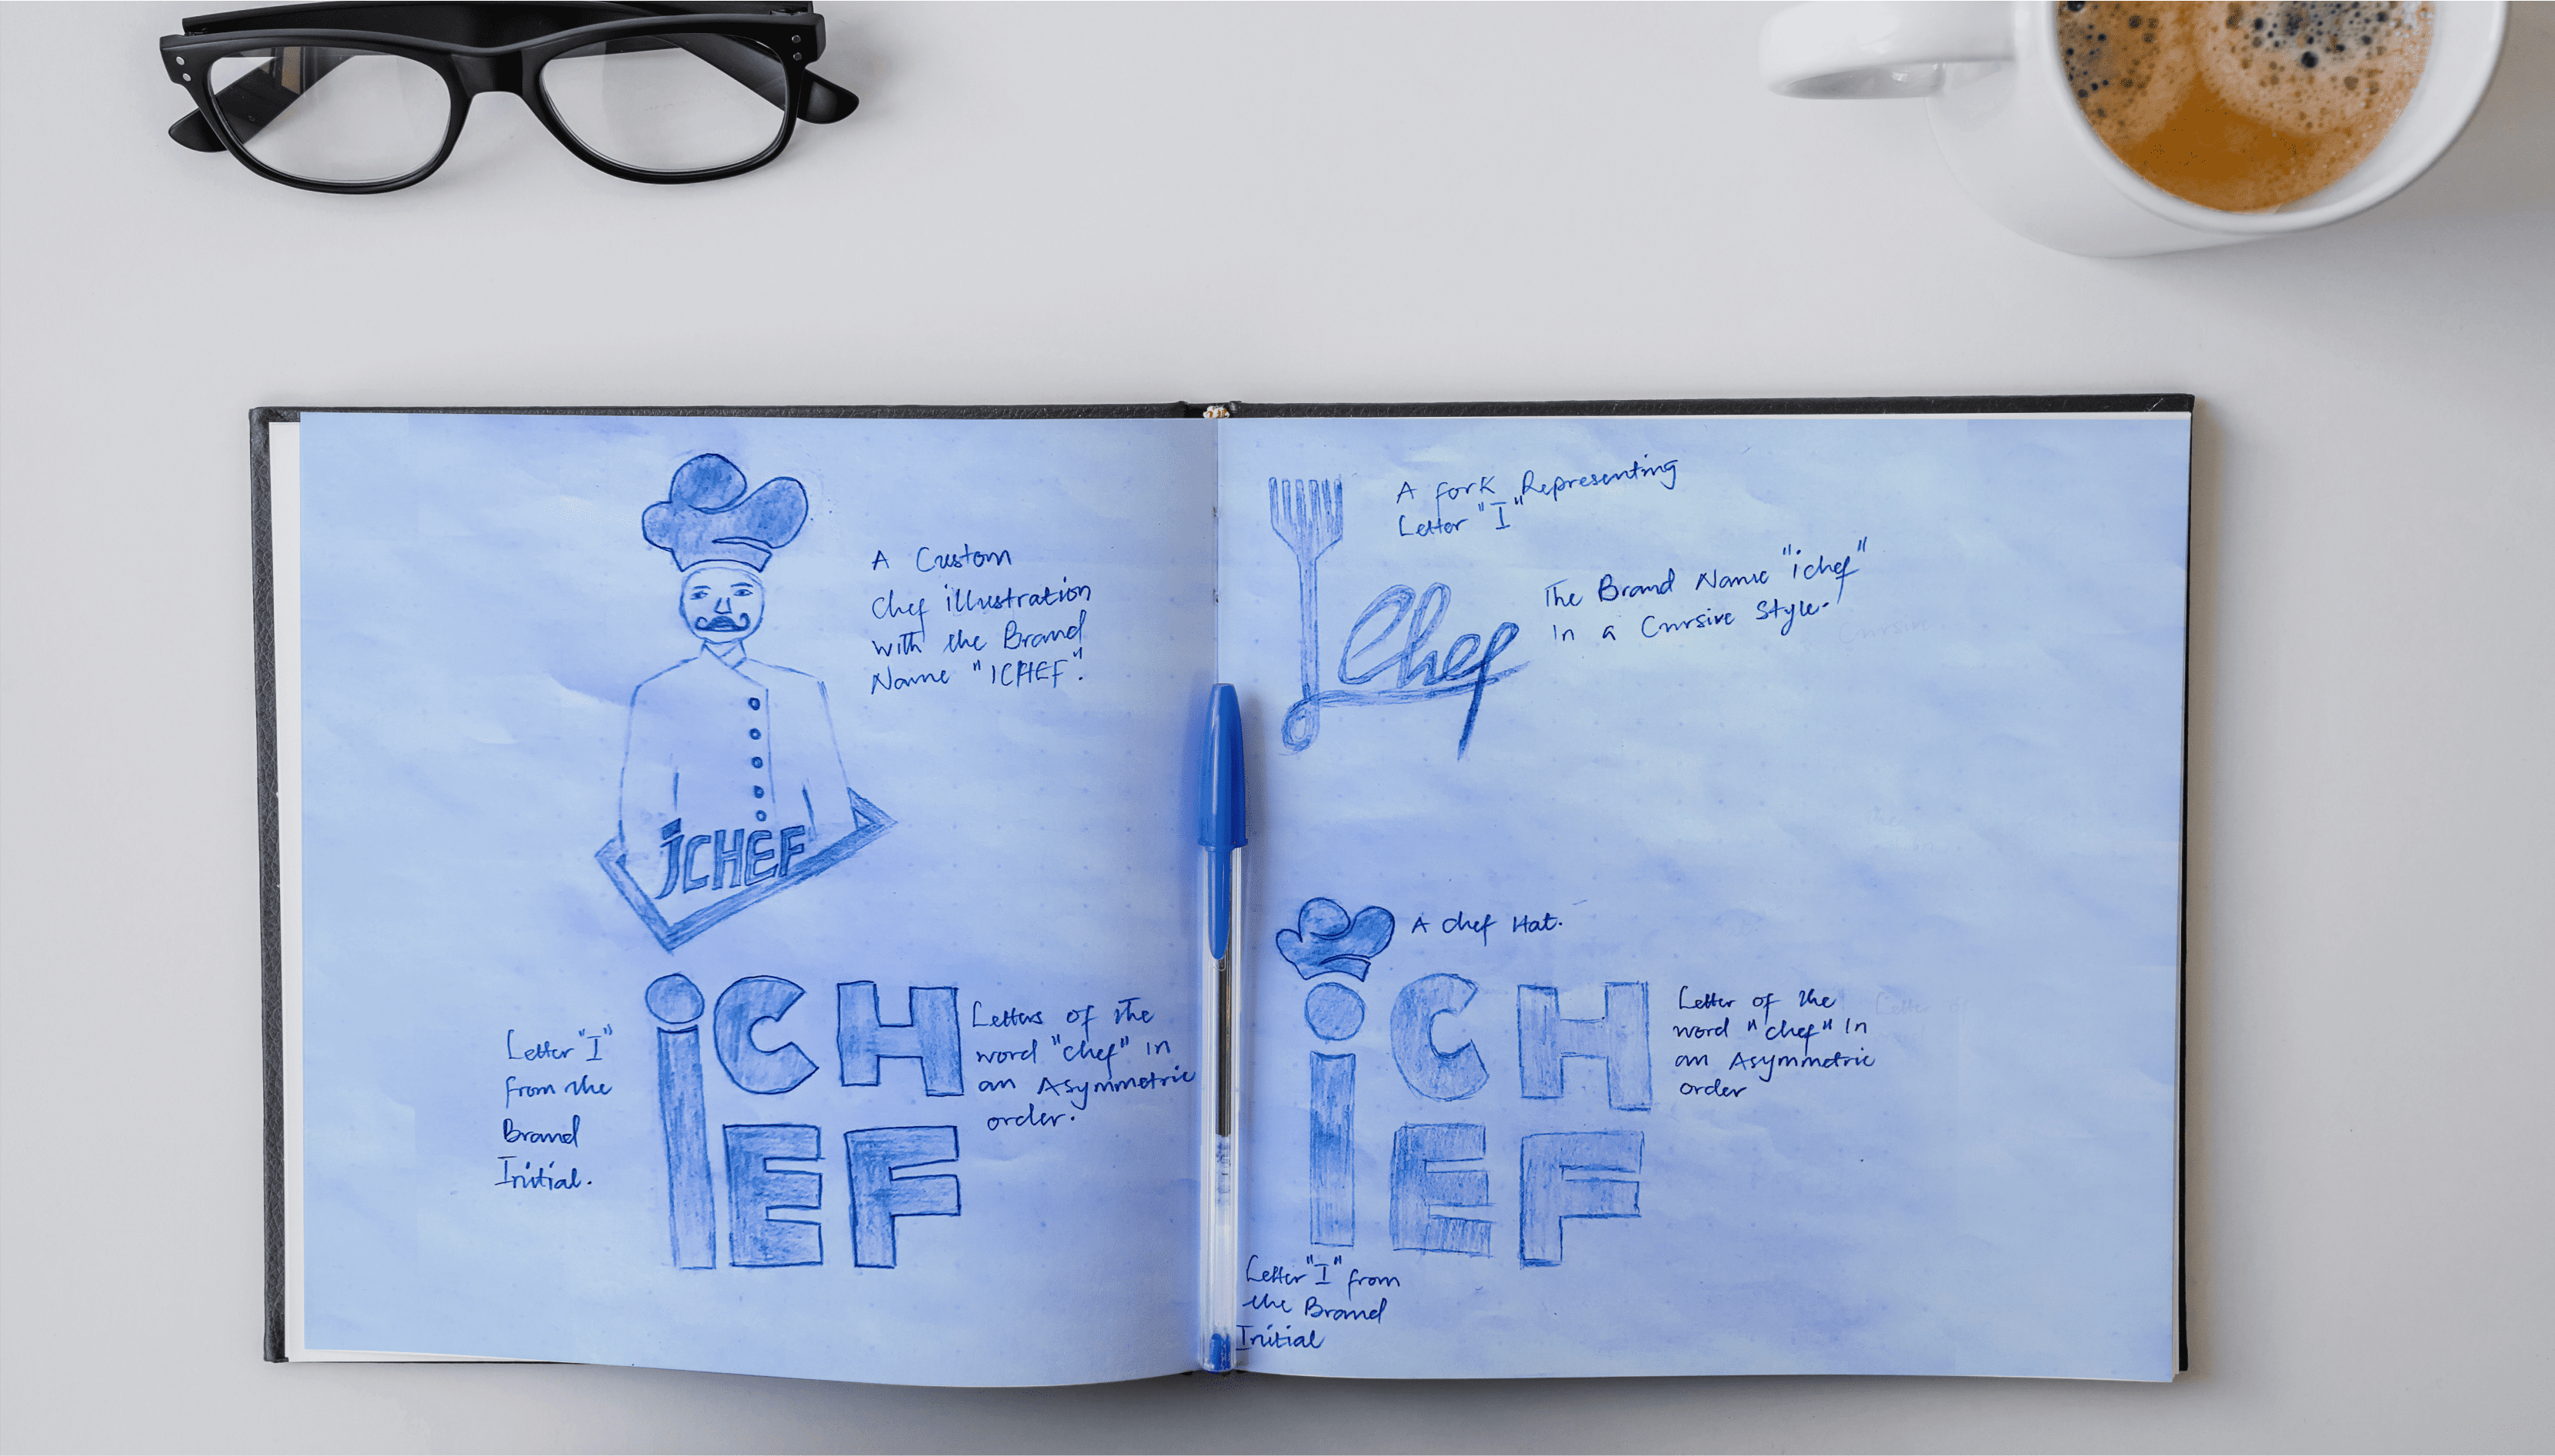 A Custom
Chef illustration
with the Brand
Name "ICHEF".
iCHEF
Letter "I"
from the
Brand
Initial.
iCH
EF
Letters of the
word "chef" in
an Asymmetric
order.
A fork Representing
Letter "I"
Chef
The Brand Name "ichef"
in a Cursive Style.
A chef Hat.
iCH
EF
Letter of the
word "chef" in
an Asymmetric
order
Letter "I" from
the Brand
Initial